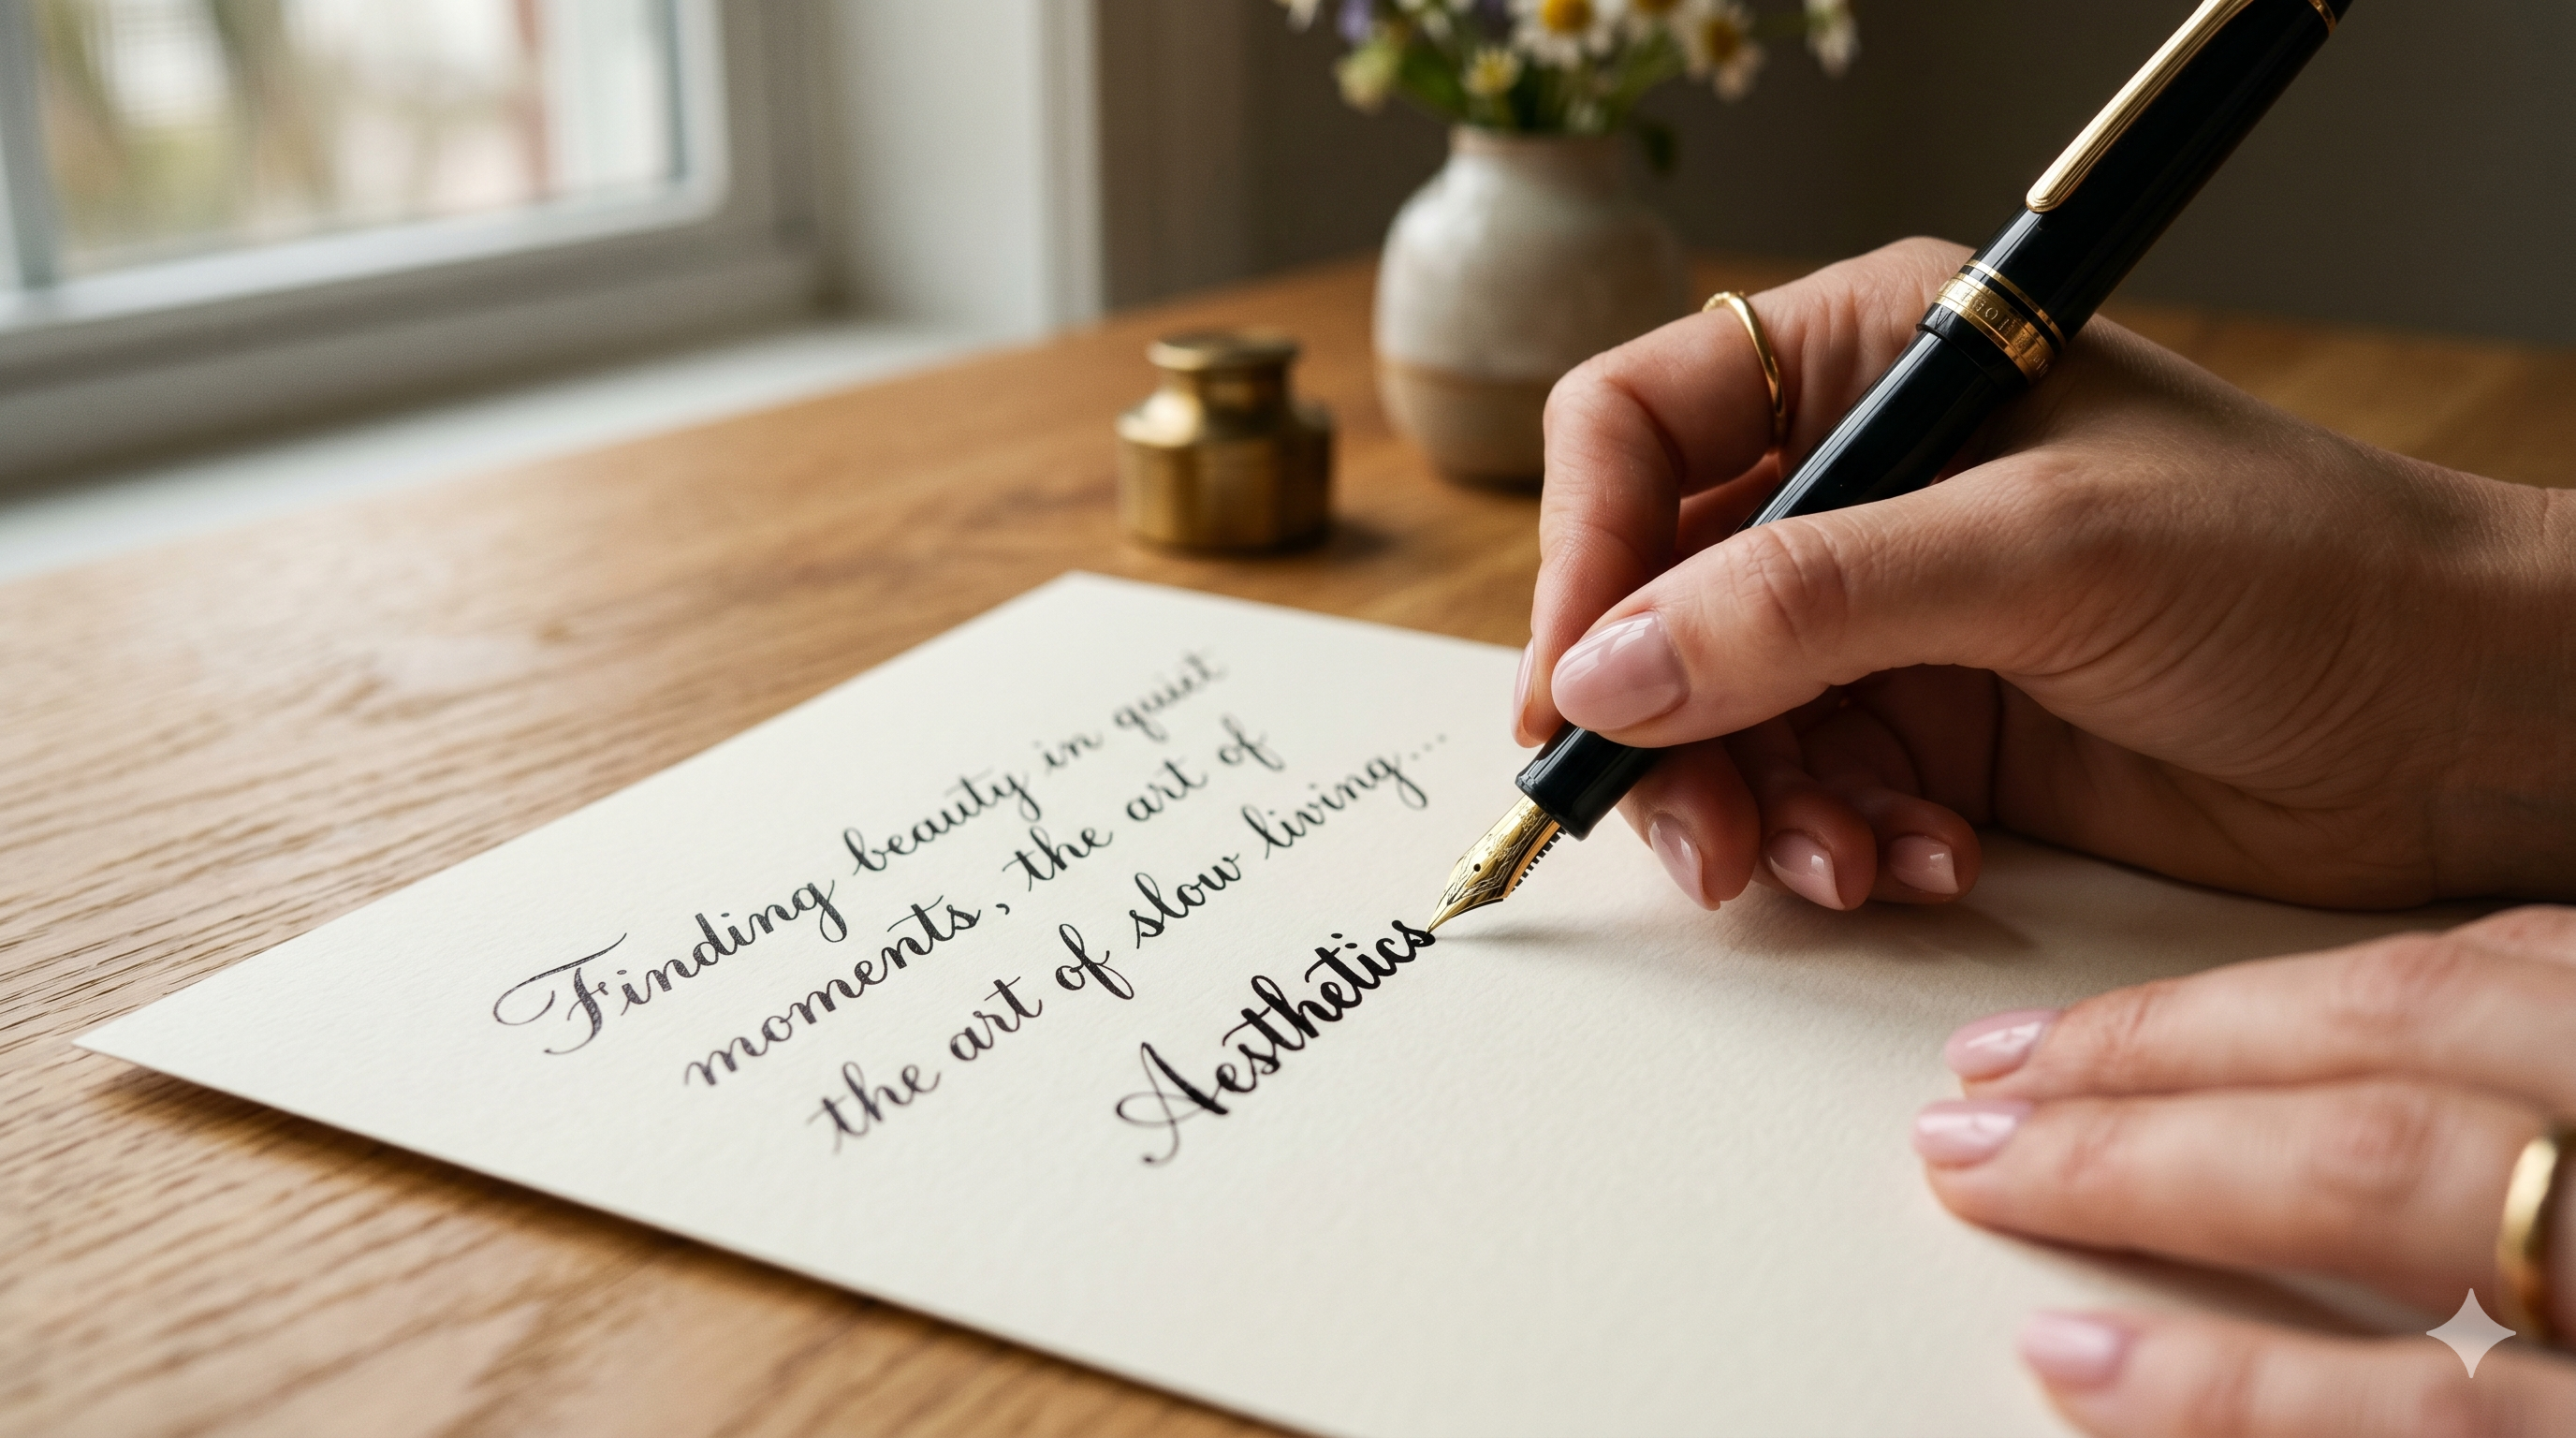 Finding beauty in quiet
moments, the art of
the art of slow living...
Aesthetics